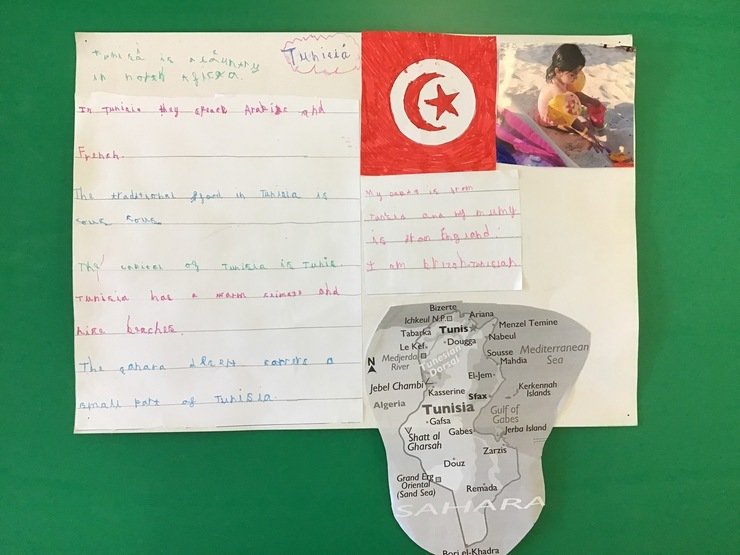 Tunisia is a country
in north africa.
Tunisia
In Tunisia they speack Arabic and
French.
The traditional food in Tunisia is
cous cous
The capital of Tunisia is Tunis.
Tunisia has a warm climate and
nise beaches
The sahara desert covers a
small part of Tunisia.
My is from
Tunisia and my mumy
is from England
I am Tunisian
Bizerte
Ichkeul N.P.
Ariana
Tabapka
Tunis
Menzel Temine
Nabeul
Le Kef
Dougga
Medjerda
River
Tunesian
Dorsal
Sousse
Mediterranean
Sea
Mahdia
N
El-Jem
Jebel Chambi
Kasserine
Sfax
Kerkennah
Islands
Algeria
Tunisia
Gulf of
Gabes
Gafsa
Shatt al
Gharsah
Gabes
Jerba Island
Zarzis
Douz
Grand Erg
Oriental
(Sand Sea)
Remada
SAHARA
Borj el-Khadra